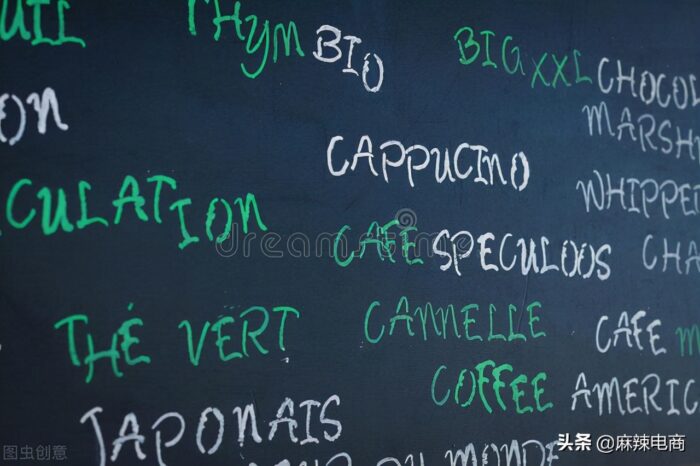 THYM BIO
BIG XXL
CAPPUCINO
WHIPPE
CULATION
CAFE SPECULOOS
THÉ VERT
CANNELLE
CAFE
COFFEE AMERIC
JAPONAIS
DU MONDE
dreamstime
图虫创意
头条 @麻辣电商